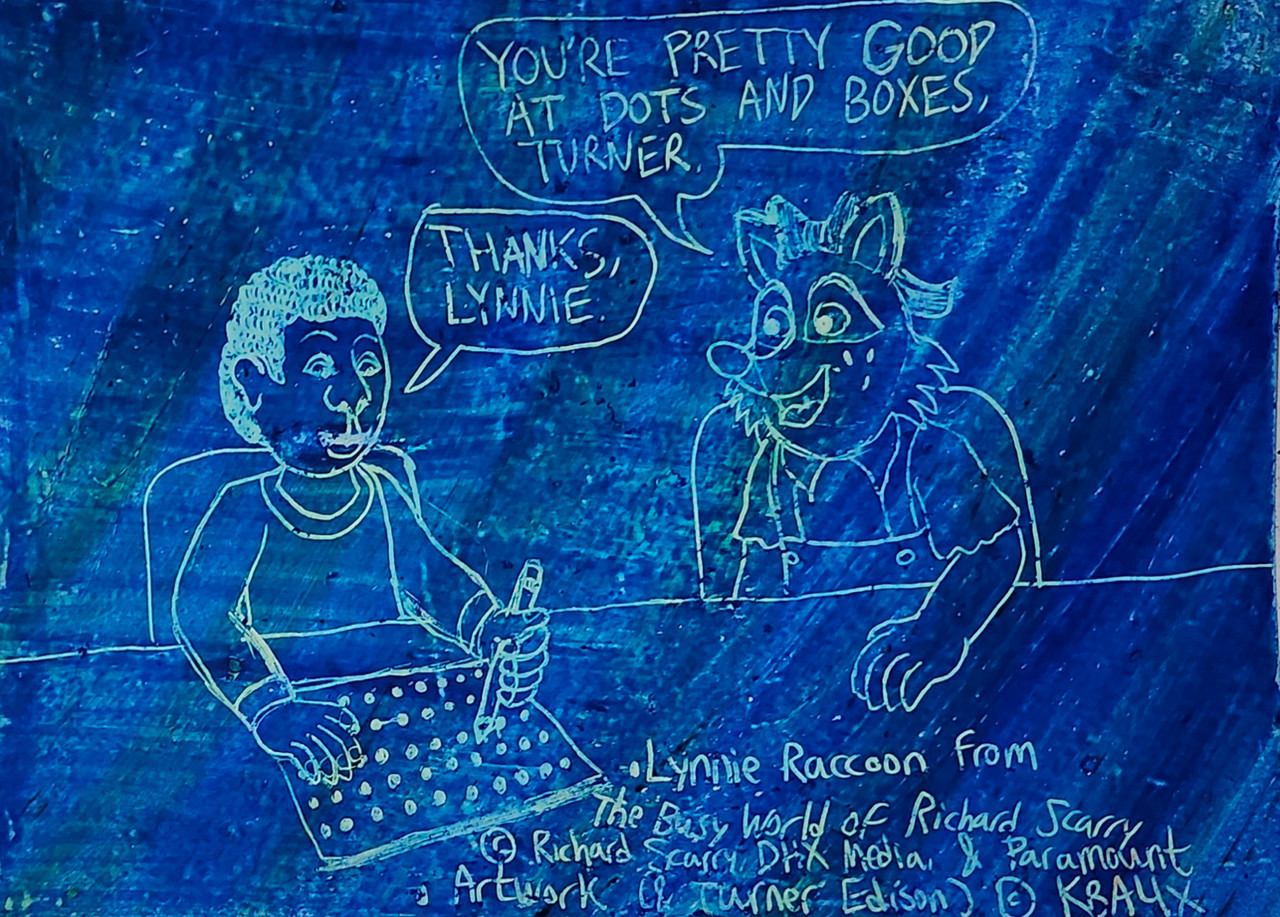 YOU'RE PRETTY GOOD
AT DOTS AND BOXES,
TURNER.
THANKS,
LYNNIE.
Lynnie Raccoon from
The Busy World of Richard Scarry
© Richard Scarry, DHX Media, & Paramount
Artwork (& Turner Edison) © KBA4X